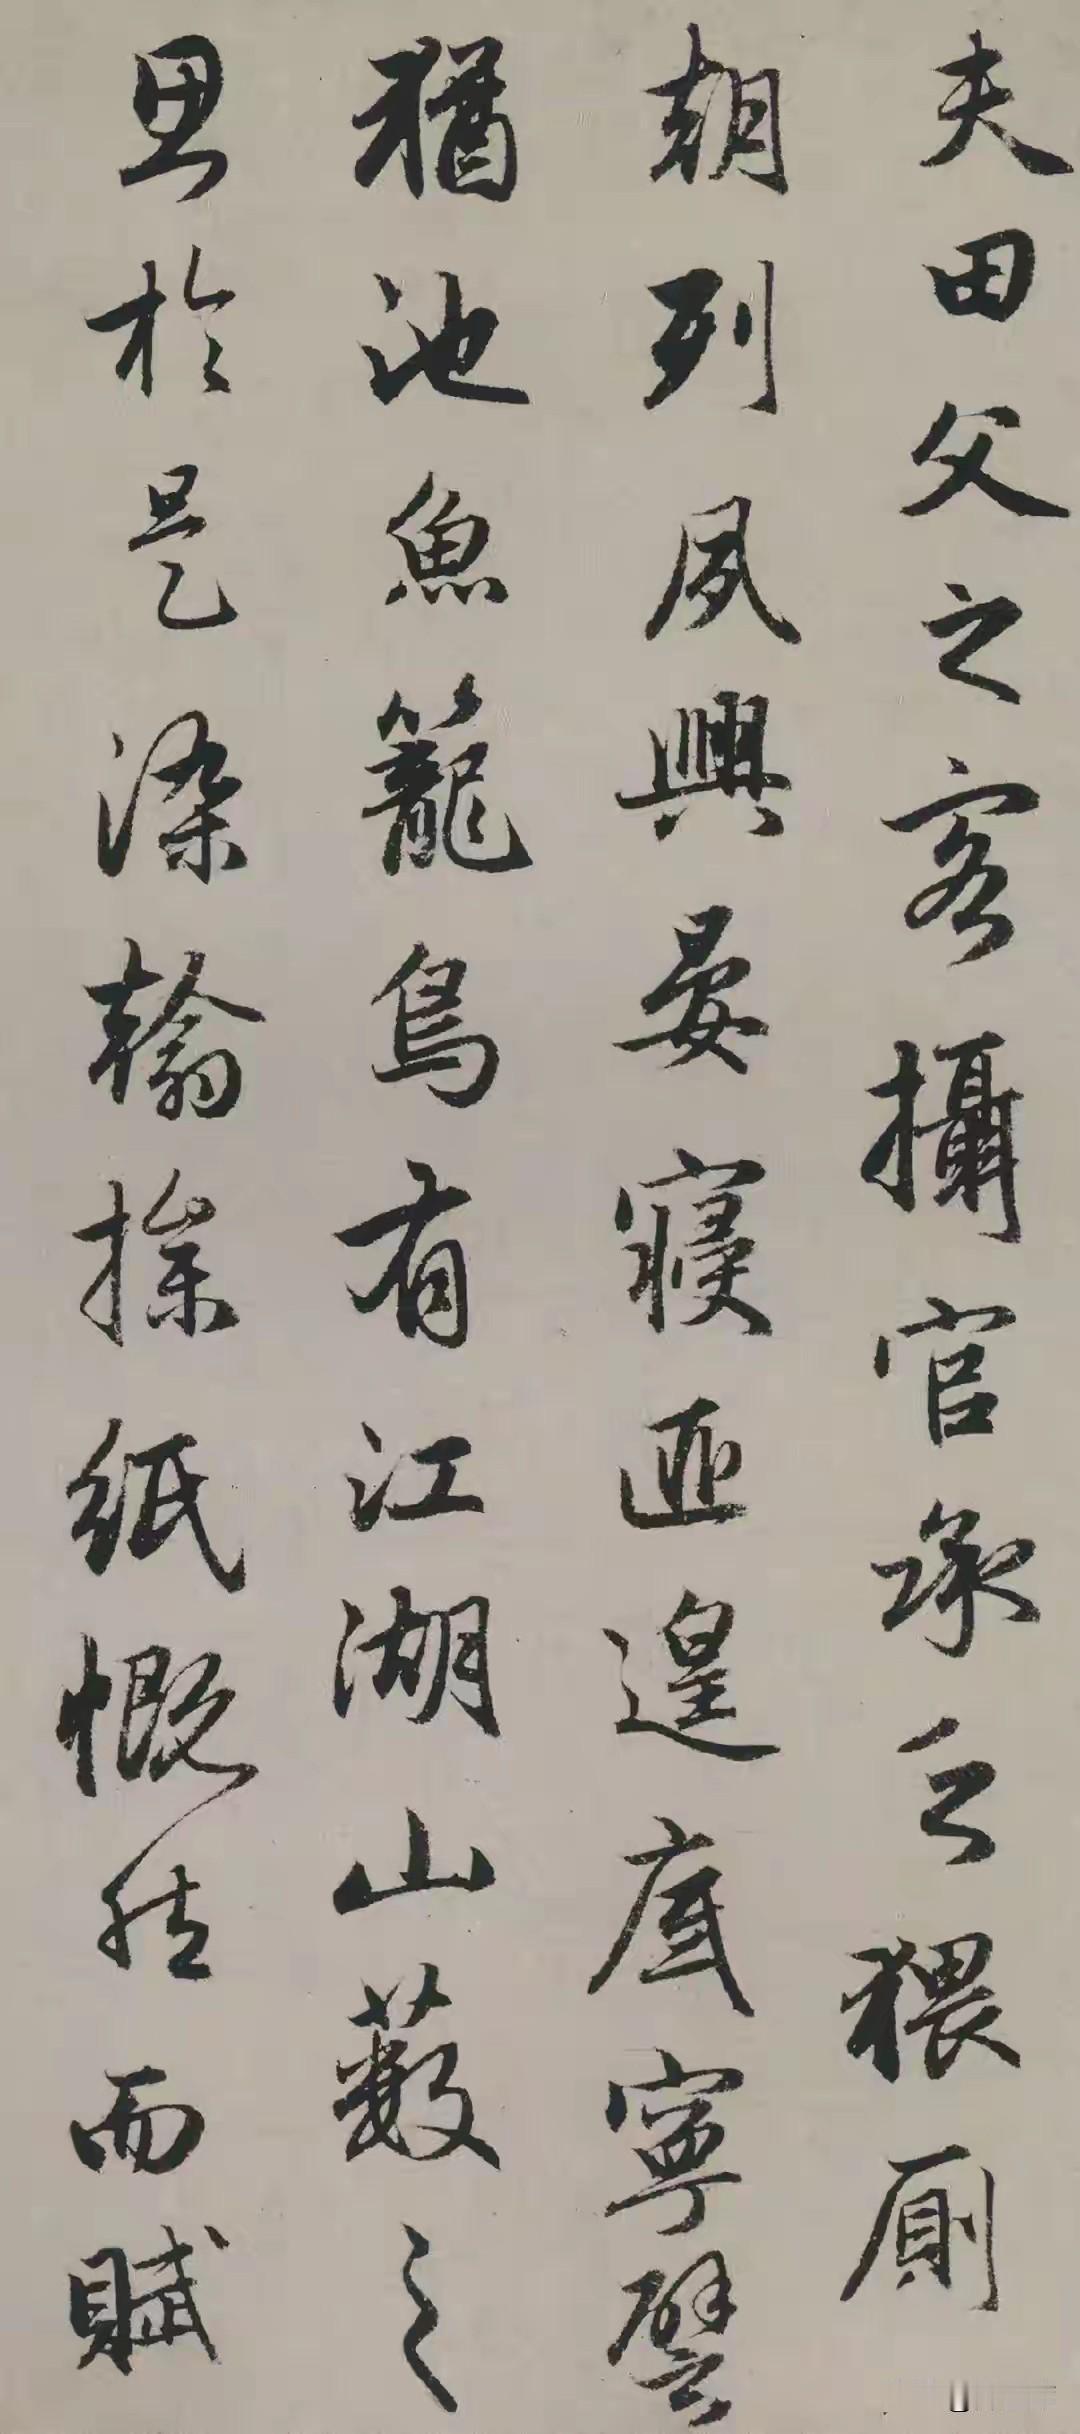 夫田父之客攝官承乏猥厠
朝列夙興晏寢匪遑底寧譬
猶池魚籠鳥有江湖山藪之
思於是染翰操紙慨然而賦